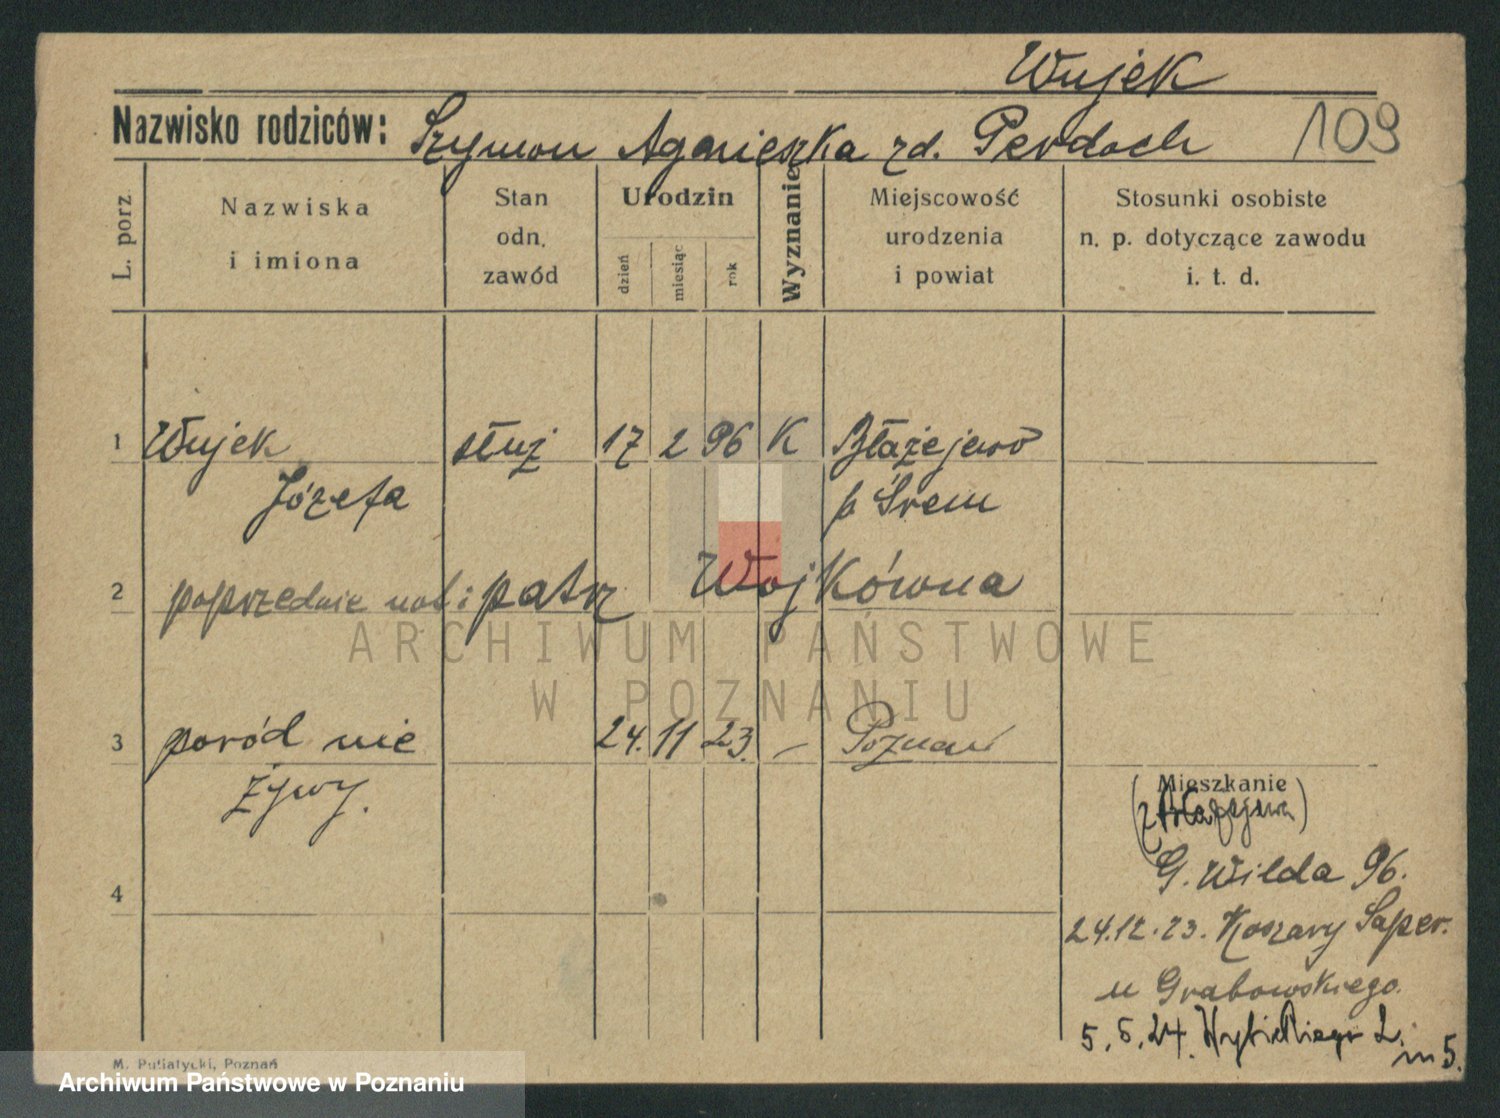 Wujek
Nazwisko rodziców: Szymon Agnieszka zd. Perdoch 109
L. porz.
Nazwiska
i imiona
Stan
odn.
zawód
Urodzin
dzień
miesiąc
rok
Wyznanie
Miejscowość
urodzenia
i powiat
Stosunki osobiste
n. p. dotyczące zawodu
i. t. d.
1 Wujek służ 17 2 96 K Błażejewo
Józefa p Śrem
2 poprzednie patrz Wojkówna
3 poród nie 24. 11 23. – Poznań
żywy.
Mieszkanie
(z Błażejewa)
4
G. Wilda 96.
24.12.23. Koszary Saper.
u Grabowskiego.
5.5.24. Wybickiego 2.
m 5.
M. Putiatycki, Poznań
ARCHIWUM PAŃSTWOWE
W POZNANIU
Archiwum Państwowe w Poznaniu